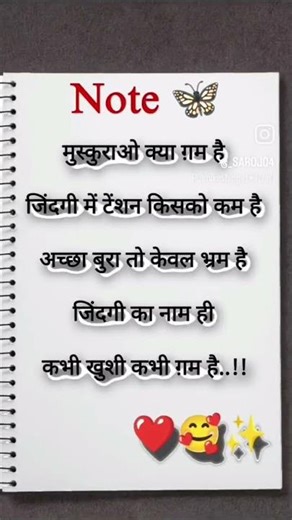 Note
मुस्कुराओ क्या ग़म है
जिंदगी में टेंशन किसको कम है
अच्छा बुरा तो केवल भ्रम है
जिंदगी का नाम ही
कभी खुशी कभी ग़म है..!!